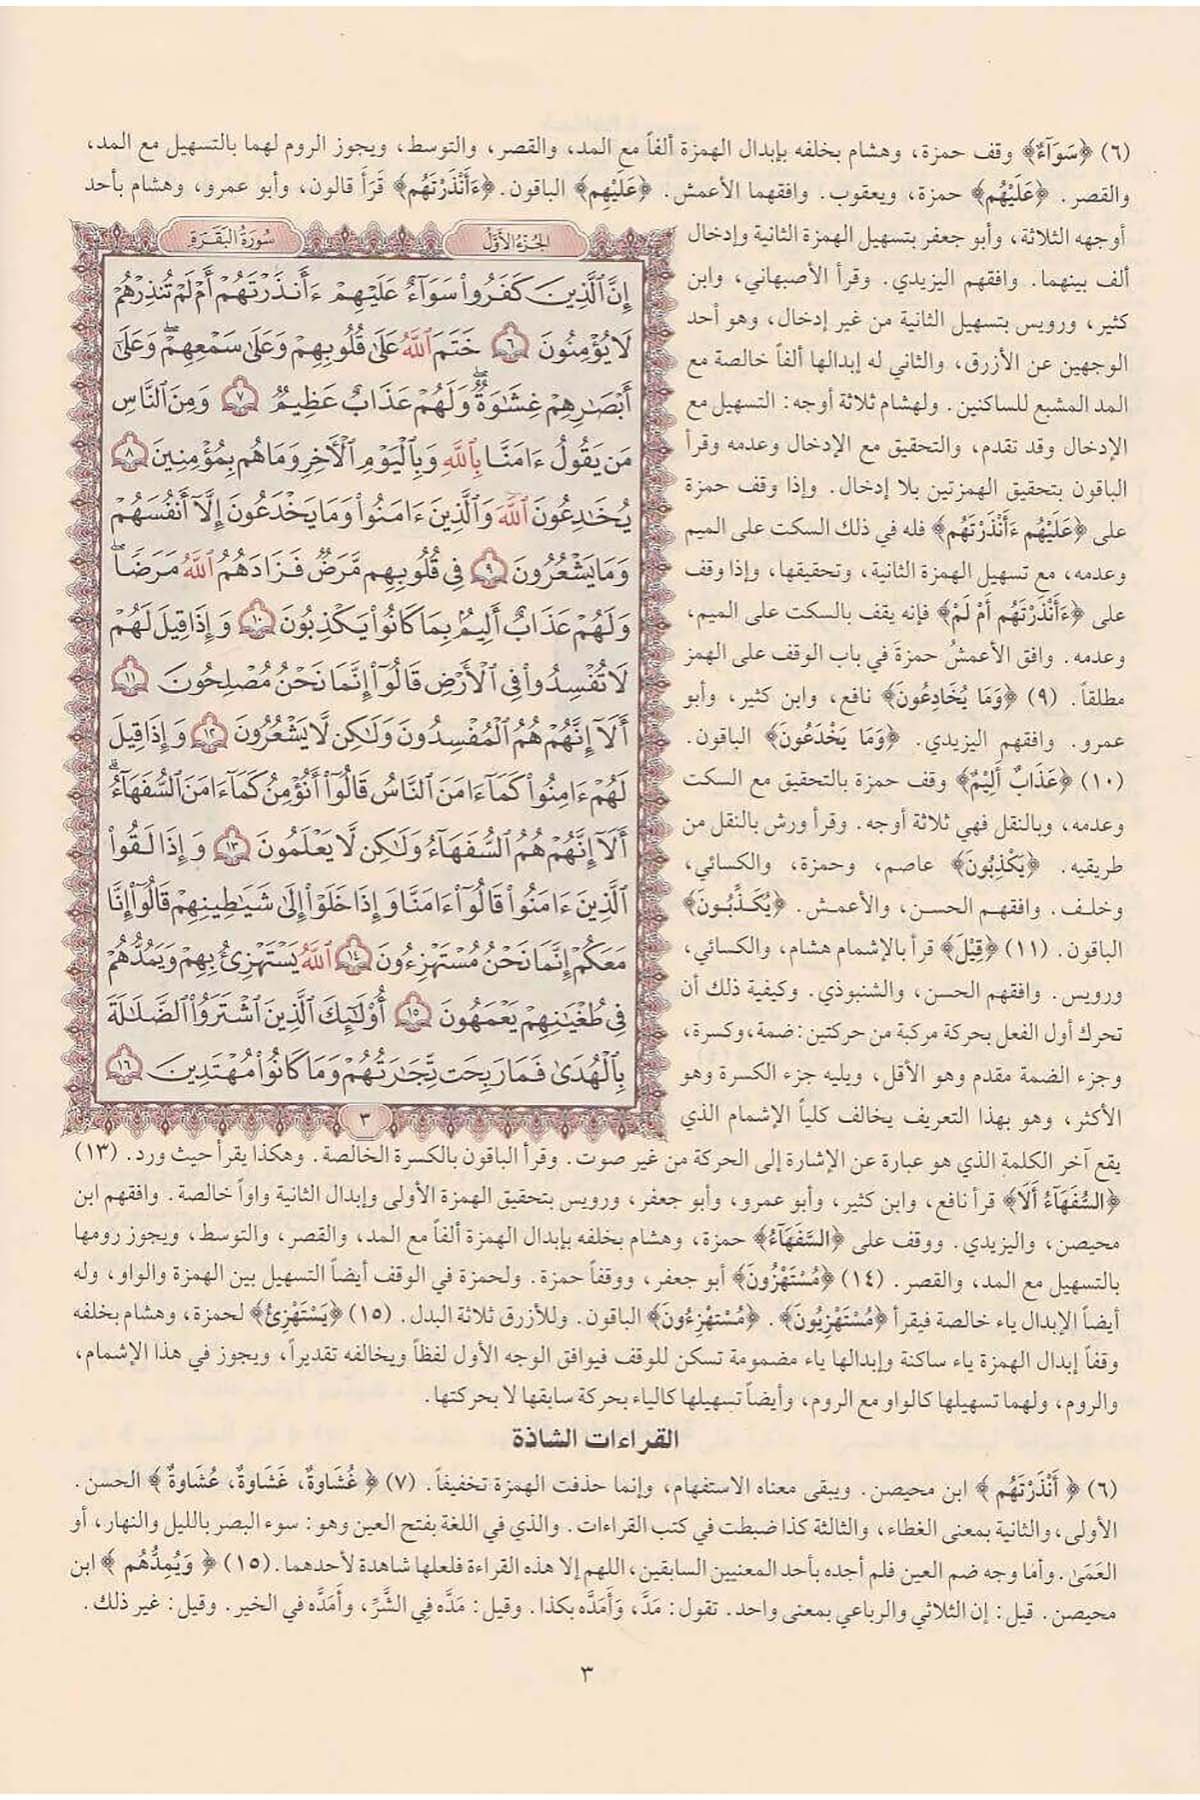 (٦) ﴿سَوَآءٌ﴾ وقف حمزة، وهشام بخلفه بإبدال الهمزة ألفاً مع المد، والقصر، والتوسط، ويجوز الروم لهما بالتسهيل مع المد،
والقصر. ﴿عَلَيْهُم﴾ حمزة، ويعقوب. وافقهما الأعمش. ﴿عَلَيْهِم﴾ الباقون. ﴿ءَأَنْذَرْتَهُم﴾ قَرَأَ قالون، وأبو عمرو، وهشام بأحد
أوجهه الثلاثة، وأبو جعفر بتسهيل الهمزة الثانية وإدخال
ألف بينهما. وافقهم اليزيدي. وقرأ الأصبهاني، وابن
كثير، ورويس بتسهيل الثانية من غير إدخال، وهو أحد
الوجهين عن الأزرق، والثاني له إبدالها ألفاً خالصة مع
المد المشبع للساكنين. ولهشام ثلاثة أوجه: التسهيل مع
الإدخال وقد تقدم، والتحقيق مع الإدخال وعدمه وقرأ
الباقون بتحقيق الهمزتين بلا إدخال. وإذا وقف حمزة
على ﴿عَلَيْهُم ءَأَنْذَرْتَهُم﴾ فله في ذلك السكت على الميم
وعدمه، مع تسهيل الهمزة الثانية، وتحقيقها، وإذا وقف
على ﴿ءَأَنْذَرْتَهُم أَمْ لَمْ﴾ فإنه يقف بالسكت على الميم،
وعدمه. وافق الأعمشُ حمزةَ في باب الوقف على الهمز
مطلقاً. (٩) ﴿وَمَا يُخَادِعُونَ﴾ نافع، وابن كثير، وأبو
عمرو. وافقهم اليزيدي. ﴿وَمَا يَخْدَعُونَ﴾ الباقون.
(١٠) ﴿عَذَابٌ أَلِيْمٌ﴾ وقف حمزة بالتحقيق مع السكت
وعدمه، وبالنقل فهي ثلاثة أوجه. وقرأ ورش بالنقل من
طريقيه. ﴿يَكْذِبُونَ﴾ عاصم، وحمزة، والكسائي،
وخلف. وافقهم الحسن، والأعمش. ﴿يُكَذِّبُونَ﴾
الباقون. (١١) ﴿قِيْلَ﴾ قرأ بالإشمام هشام، والكسائي،
ورويس. وافقهم الحسن، والشنبوذي. وكيفية ذلك أن
تحرك أول الفعل بحركة مركبة من حركتين: ضمة، وكسرة،
وجزء الضمة مقدم وهو الأقل، ويليه جزء الكسرة وهو
الأكثر، وهو بهذا التعريف يخالف كلياً الإشمام الذي
الجزء الأول
سورة البقرة
إِنَّ ٱلَّذِينَ كَفَرُواْ سَوَآءٌ عَلَيْهِمْ ءَأَنذَرْتَهُمْ أَمْ لَمْ تُنذِرْهُمْ
لَا يُؤْمِنُونَ ٦ خَتَمَ ٱللَّهُ عَلَىٰ قُلُوبِهِمْ وَعَلَىٰ سَمْعِهِمْۖ وَعَلَىٰٓ
أَبْصَٰرِهِمْ غِشَٰوَةٌۖ وَلَهُمْ عَذَابٌ عَظِيمٌ ٧ وَمِنَ ٱلنَّاسِ
مَن يَقُولُ ءَامَنَّا بِٱللَّهِ وَبِٱلْيَوْمِ ٱلْأَخِرِ وَمَا هُم بِمُؤْمِنِينَ ٨
يُخَٰدِعُونَ ٱللَّهَ وَٱلَّذِينَ ءَامَنُواْ وَمَا يَخْدَعُونَ إِلَّآ أَنفُسَهُمْ
وَمَا يَشْعُرُونَ ٩ فِى قُلُوبِهِم مَّرَضٌ فَزَادَهُمُ ٱللَّهُ مَرَضًاۖ
وَلَهُمْ عَذَابٌ أَلِيمٌۢ بِمَا كَانُواْ يَكْذِبُونَ ١٠ وَإِذَا قِيلَ لَهُمْ
لَا تُفْسِدُواْ فِى ٱلْأَرْضِ قَالُوٓاْ إِنَّمَا نَحْنُ مُصْلِحُونَ ١١
أَلَآ إِنَّهُمْ هُمُ ٱلْمُفْسِدُونَ وَلَٰكِن لَّا يَشْعُرُونَ ١٢ وَإِذَا قِيلَ
لَهُمْ ءَامِنُواْ كَمَآ ءَامَنَ ٱلنَّاسُ قَالُوٓاْ أَنُؤْمِنُ كَمَآ ءَامَنَ ٱلسُّفَهَآءُۗ
أَلَآ إِنَّهُمْ هُمُ ٱلسُّفَهَآءُ وَلَٰكِن لَّا يَعْلَمُونَ ١٣ وَإِذَا لَقُواْ
ٱلَّذِينَ ءَامَنُواْ قَالُوٓاْ ءَامَنَّا وَإِذَا خَلَوْاْ إِلَىٰ شَيَٰطِينِهِمْ قَالُوٓاْ إِنَّا
مَعَكُمْ إِنَّمَا نَحْنُ مُسْتَهْزِءُونَ ١٤ ٱللَّهُ يَسْتَهْزِئُ بِهِمْ وَيَمُدُّهُمْ
فِى طُغْيَٰنِهِمْ يَعْمَهُونَ ١٥ أُوْلَٰٓئِكَ ٱلَّذِينَ ٱشْتَرَوُاْ ٱلضَّلَٰلَةَ
بِٱلْهُدَىٰ فَمَا رَبِحَت تِّجَٰرَتُهُمْ وَمَا كَانُواْ مُهْتَدِينَ ١٦
٣
يقع آخر الكلمة الذي هو عبارة عن الإشارة إلى الحركة من غير صوت. وقرأ الباقون بالكسرة الخالصة. وهكذا يقرأ حيث ورد. (١٣)
﴿السُّفَهَآءُ أَلَا﴾ قرأ نافع، وابن كثير، وأبو عمرو، وأبو جعفر، ورويس بتحقيق الهمزة الأولى وإبدال الثانية واواً خالصة. وافقهم ابن
محيصن، واليزيدي. ووقف على ﴿السَّفَهَآءُ﴾ حمزة، وهشام بخلفه بإبدال الهمزة ألفاً مع المد، والقصر، والتوسط، ويجوز رومها
بالتسهيل مع المد، والقصر. (١٤) ﴿مُسْتَهْزُونَ﴾ أبو جعفر، ووقفاً حمزة. ولحمزة في الوقف أيضاً التسهيل بين الهمزة والواو، وله
أيضاً الإبدال ياء خالصة فيقرأ ﴿مُسْتَهْزِيُونَ﴾. ﴿مُسْتَهْزِءُونَ﴾ الباقون. وللأزرق ثلاثة البدل. (١٥) ﴿يَسْتَهْزِئُ﴾ لحمزة، وهشام بخلفه
وقفاً إبدال الهمزة ياء ساكنة وإبدالها ياء مضمومة تسكن للوقف فيوافق الوجه الأول لفظاً ويخالفه تقديراً، ويجوز في هذا الإشمام،
والروم، ولهما تسهيلها كالواو مع الروم، وأيضاً تسهيلها كالياء بحركة سابقها لا بحركتها.
القراءات الشاذة
(٦) ﴿ أَنْذَرْتَهُم ﴾ ابن محيصن. ويبقى معناه الاستفهام، وإنما حذفت الهمزة تخفيفاً. (٧) ﴿ غُشَاوةٌ، غَشَاوة، عُشَاوةٌ ﴾ الحسن.
الأولى، والثانية بمعنى الغطاء، والثالثة كذا ضبطت في كتب القراءات. والذي في اللغة بفتح العين وهو: سوء البصر بالليل والنهار، أو
العَمَىٰ. وأما وجه ضم العين فلم أجده بأحد المعنيين السابقين، اللهم إلا هذه القراءة فلعلها شاهدة لأحدهما. (١٥) ﴿ وَيُمِدُّهُم ﴾ ابن
محيصن. قيل: إن الثلاثي والرباعي بمعنى واحد. تقول: مَدَّ، وَأَمَدَّه بكذا. وقيل: مَدَّه فِي الشَّرِّ، وأَمَدَّه في الخير. وقيل: غير ذلك.
٣